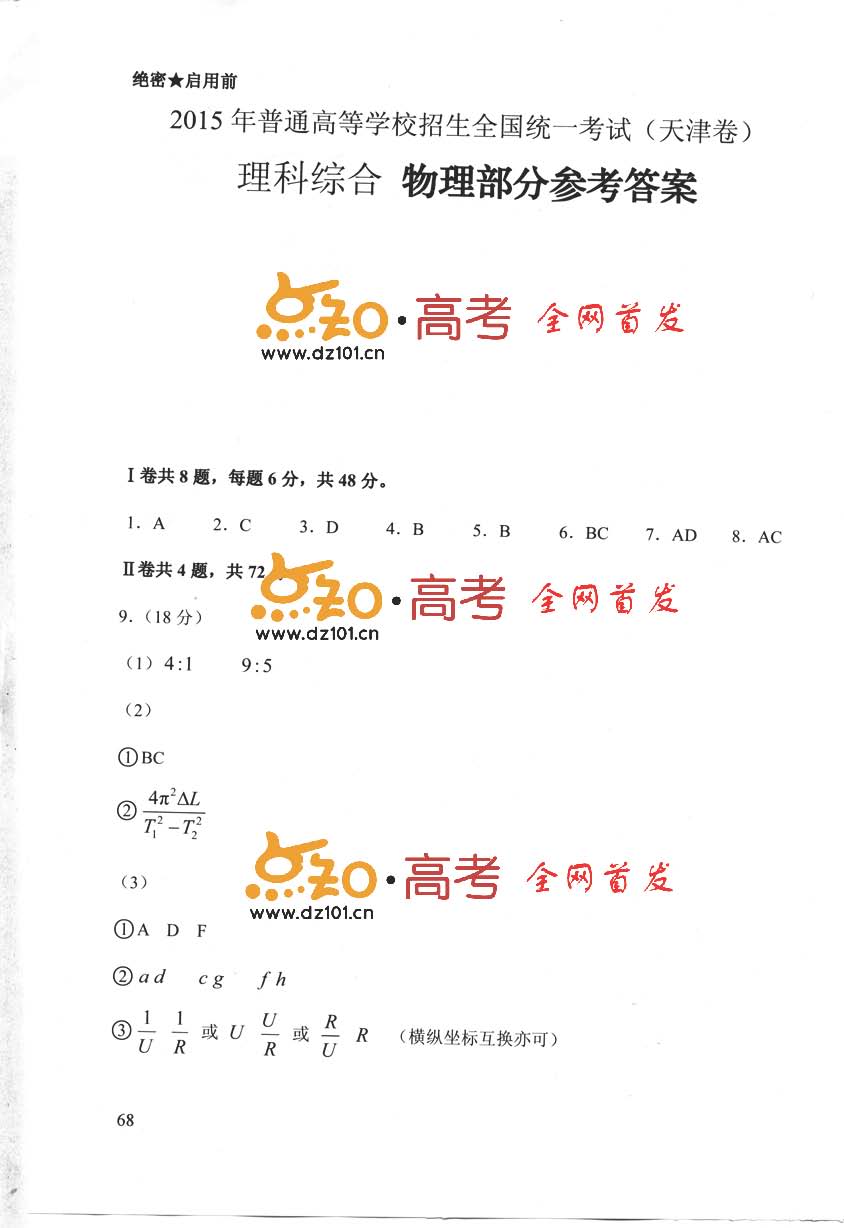 绝密★启用前
2015 年普通高等学校招生全国统一考试（天津卷）
理科综合 物理部分参考答案
点知·高考 全网首发
www.dz101.cn
Ⅰ卷共 8 题，每题 6 分，共 48 分。
1．A 2．C 3．D 4．B 5．B 6．BC 7．AD 8．AC
Ⅱ卷共 4 题，共 72
点知·高考 全网首发
9．（18 分）
www.dz101.cn
（1）4:1 9:5
（2）
①BC
②4π²ΔL/(T₁²−T₂²)
点知·高考 全网首发
（3）
www.dz101.cn
①A D F
②ad cg fh
③1/U 1/R 或 U U/R 或 R/U R （横纵坐标互换亦可）
68